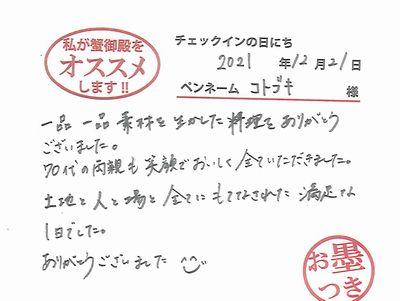 私が蟹御殿を
オススメ
します!!
チェックインの日にち
2021 年 12 月 21 日
ペンネーム コトブキ 様
一品一品素材を生かした料理をありがとう
ございました。
70代の両親も笑顔でおいしく全ていただきました。
土地と人と場と全てにもてなされた満足な
1日でした。
ありがとうございました
お墨
つき